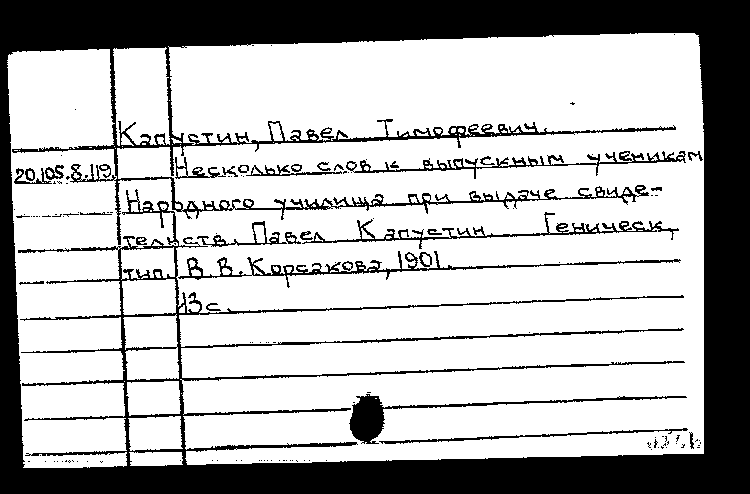 Капустин, Павел Тимофеевич.
20.105.8.119. Несколько слов к выпускным ученикам
Народного училища при выдаче свиде-
тельств. Павел Капустин. Геническ,
тип. В. В. Корсакова, 1901.
13 с.